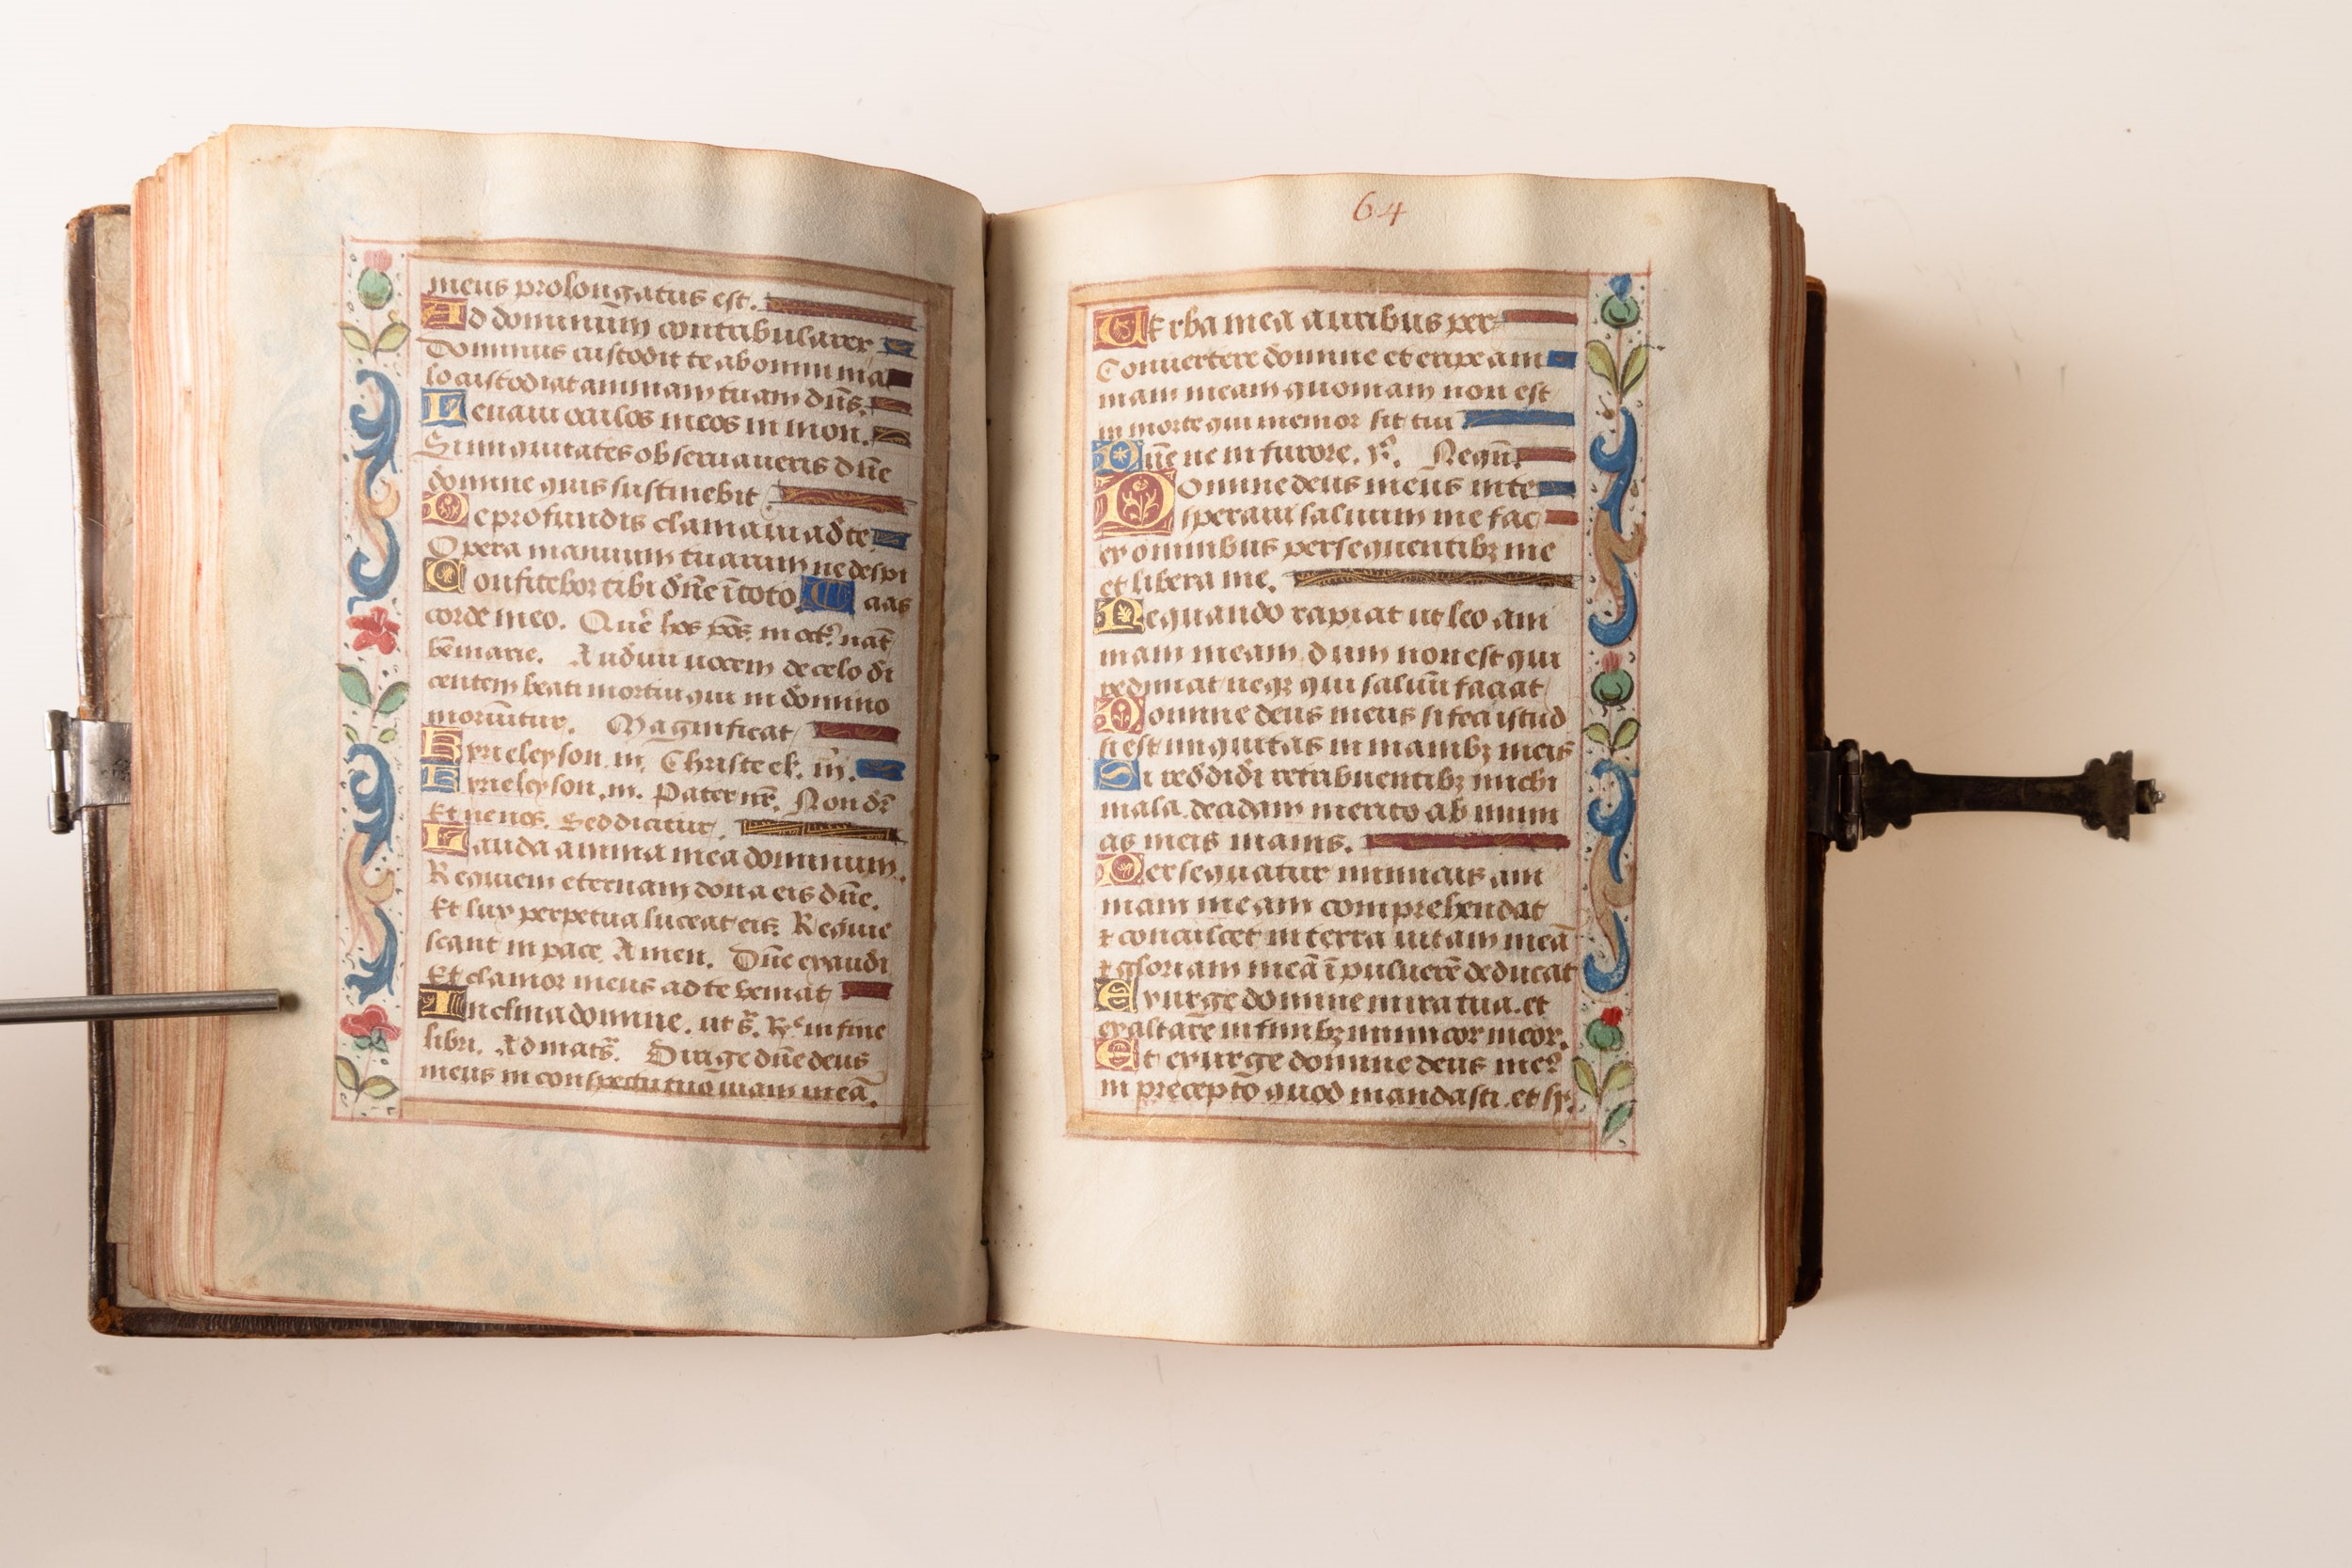 meus prolongatus est.
Ad dominum contribularer
Dominus custodit te ab omni ma
lo custodiat animam tuam dn̄s.
Leuaui oculos meos in mon.
Si iniquitates obseruaueris dn̄e
domine quis sustinebit.
De profundis clamaui ad te
Opera manuum tuarum ne despi
Confitebor tibi dn̄e ī toto cias
corde meo. Que hos nat
be marie. Audiui uocem de celo di
centem beati mortui qui in domino
moriūtur. Magnificat
Kyrieleyson. iij. Christe el. iij.
Kyrieleyson. iij. Pater nr̄. Non dr̄
Et ne nos. Sed dicitur.
Lauda anima mea dominum.
Requiem eternam dona eis dn̄e.
Et lux perpetua luceat eis. Requie
scant in pace. Amen. Dn̄e exaudi
Et clamor meus ad te veniat
Inclina domine. ut s̄. in fine
libri. Ad mat̄. Dirige dn̄e deus
meus in conspectu tuo uiam meā.
64
Uerba mea auribus per
Conuertere domine et eripe ani
mam meam quoniam non est
in morte qui memor sit tui
Dn̄e ne in furore. ps̄. Nequn̄.
Domine deus meus in te
speraui saluum me fac
ex omnibus persequentibꝫ me
et libera me.
Nequando rapiat ut leo ani
mam meam dum non est qui
redimat neqꝫ qui saluū faciat
Domine deus meus si feci istud
si est iniquitas in manibꝫ meis
Si reddidi retribuentibꝫ michi
mala decidam merito ab inimi
cis meis inanis.
Persequatur inimicus ani
mam meam comprehendat
⁊ conculcet in terra uitam meā
⁊ gloriam meā ī puluerē deducat
Exurge domine in ira tua. et
exaltare in finibꝫ inimicor meor.
Et exurge domine deus meꝰ
in precepto quod mandasti. et sy.